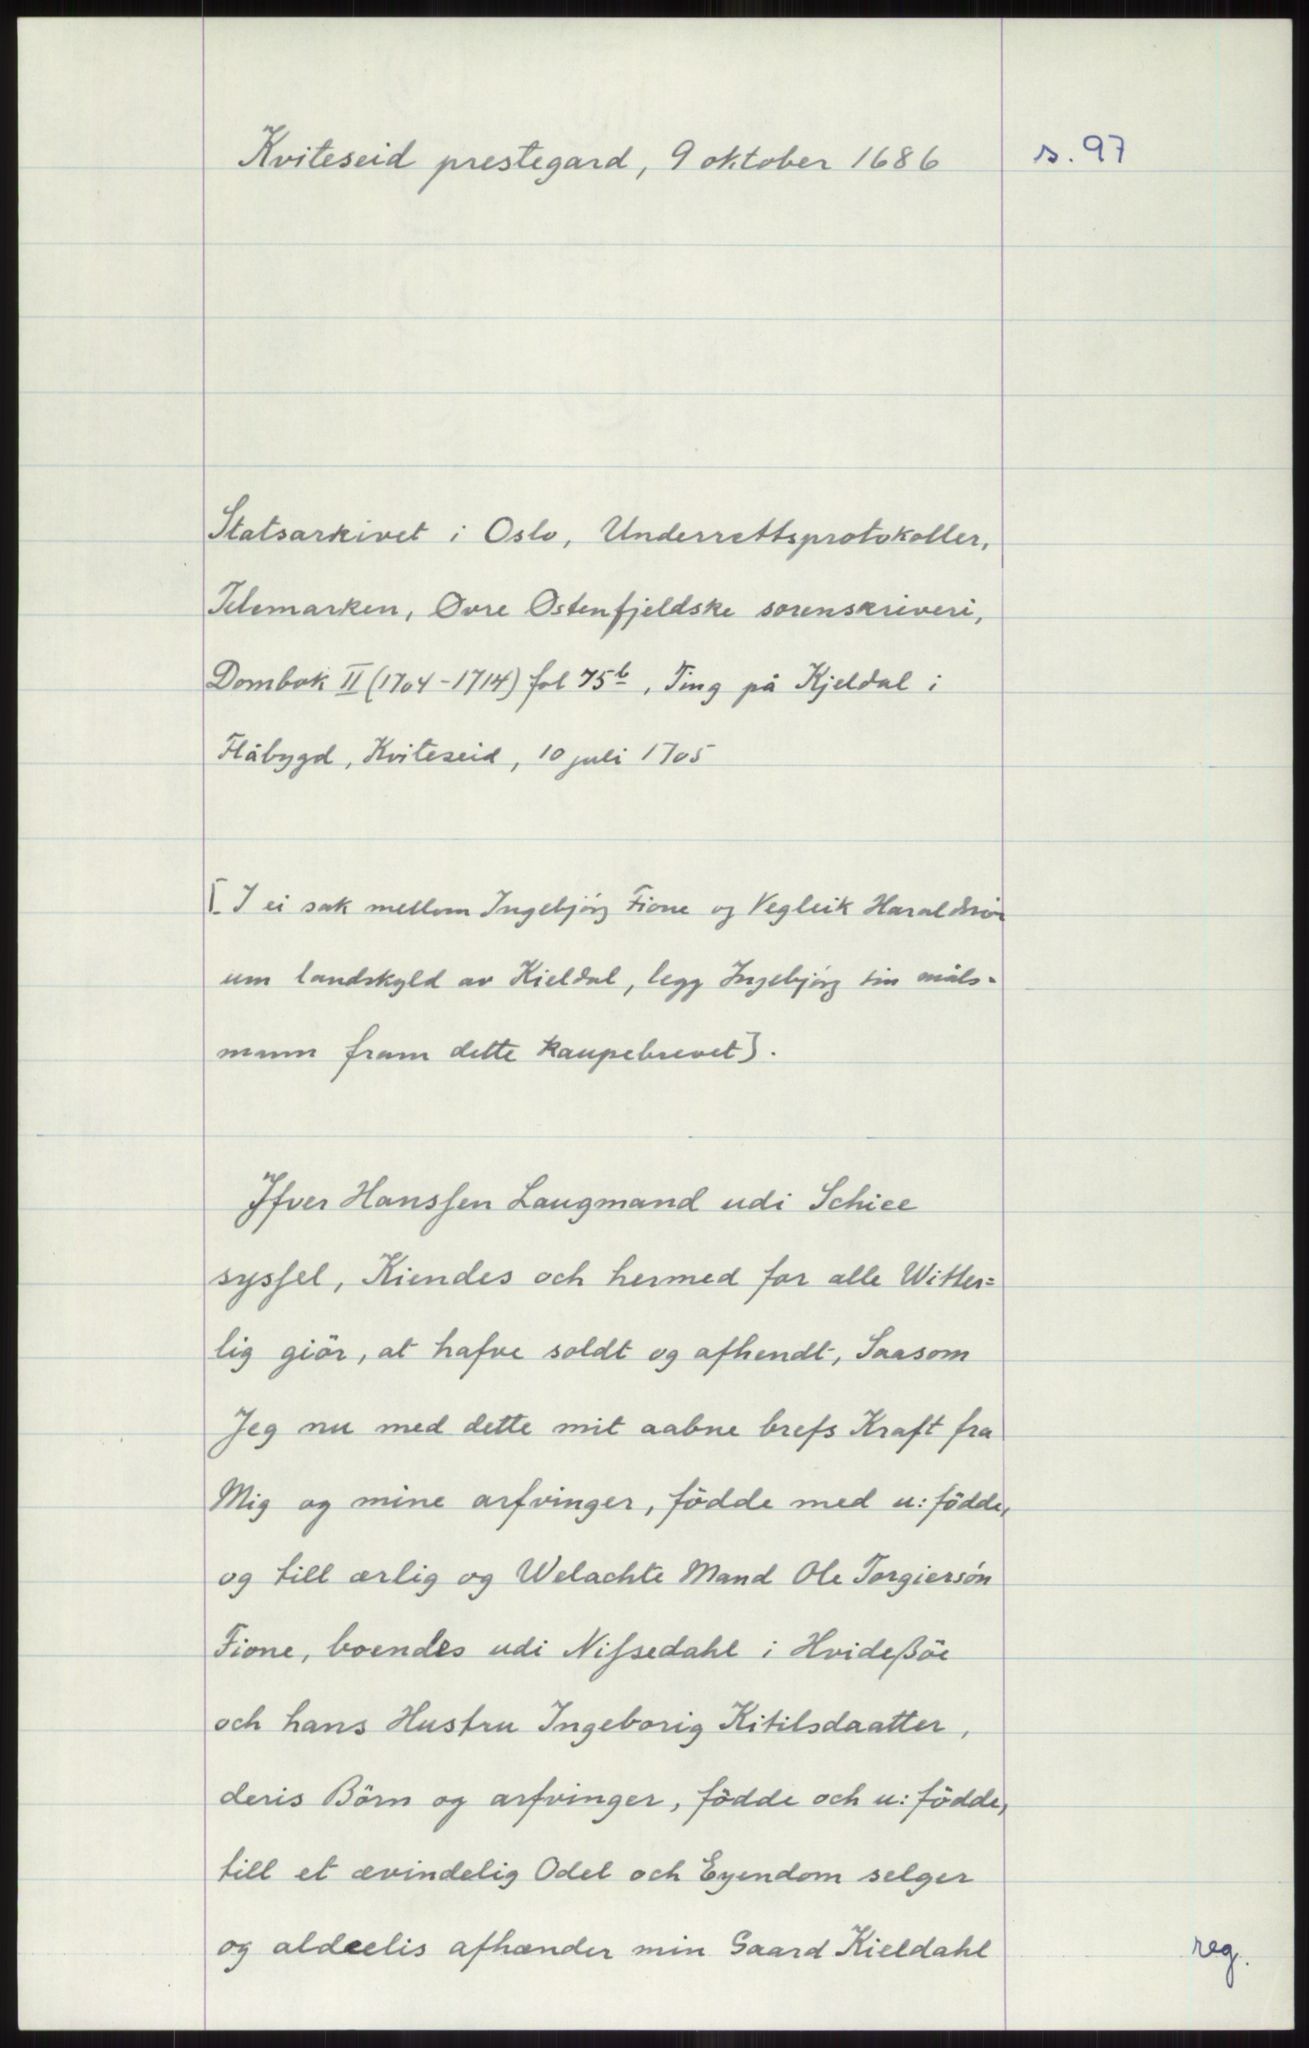 Kviteseid prestegard, 9 oktober 1686
s. 97
Statsarkivet i Oslo, Underrettsprotokoller,
Telemarken, Øvre Østenfjeldske sorenskriveri,
Dombok II (1704-1714) fol 75b, Ting på Kjeldal i
Flåbygd, Kviteseid, 10 juli 1705
[I ei sak mellom Ingebjörg Fione og Vegleik Haraldson
um landskyld av Kieldal, legg Ingebjörg sin måls-
mann fram dette kaupebrevet].
Ifver Hanssen Laugmand udi Schiee
syssel, Kiendes och hermed for alle Witter=
lig giör, at hafve soldt og afhendt, Saasom
Jeg nu med dette mit aabne brefs Kraft fra
Mig og mine arfvinger, födde med u: födde,
og till ærlig og Welachte Mand Ole Torgiersön
Fione, boendes udi Nissedahl i Hvideßöe
och hans Hustru Ingeborig Kitilsdaatter,
deris Börn og arfvinger, födde och u: födde,
till et ævindelig Odel och Eyendom selger
og aldeelis afhænder min Gaard Kieldahl
reg.